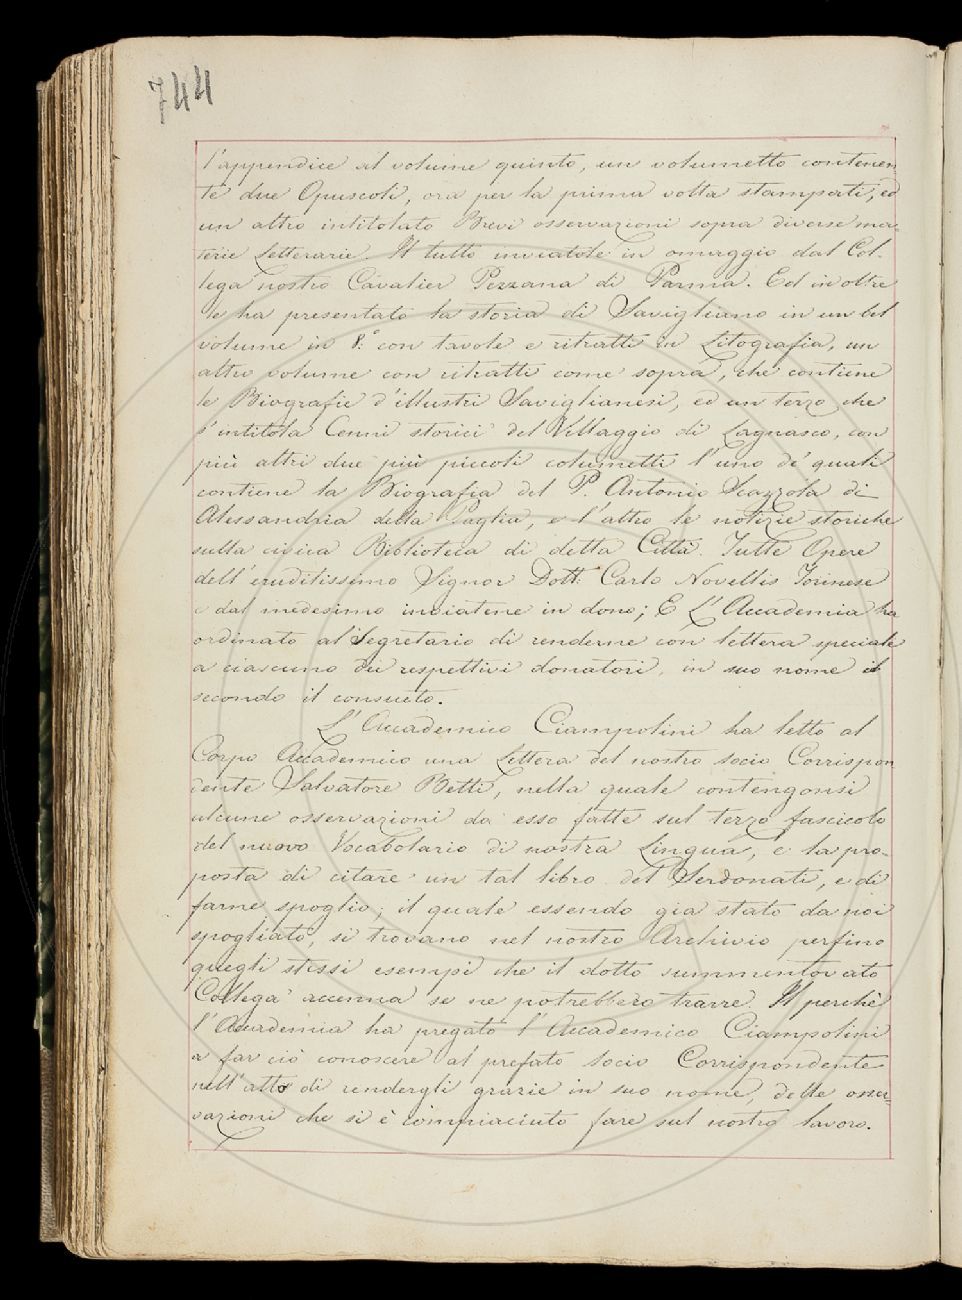 744
l'appendice al volume quinto, un volumetto contenen
te due Opuscoli, ora per la prima volta stampati, ed
un altro intitolato Brevi osservazioni sopra diverse ma-
terie Letterarie. Il tutto inviatole in omaggio dal Col-
lega nostro Cavalier Pezzana di Parma. Ed inoltre
le ha presentato la storia di Savigliano in un bel
volume in 8.° con tavole e ritratti in Litografia, un
altro volume con ritratti come sopra, che contiene
le Biografie d'illustri Saviglianesi, ed un terzo che
s'intitola Cenni storici del Villaggio di Lagnasco, con
più altri due più piccoli volumetti l'uno de' quali
contiene la Biografia del P. Antonio Scazzola di
Alessandria della Paglia, e l'altro le notizie storiche
sulla civica Biblioteca di detta Città. Tutte Opere
dell'eruditissimo Signor Dott. Carlo Novellis Torinese
e dal medesimo inviatene in dono; E L'Accademia ha
ordinato al Segretario di renderne con lettera speciale
a ciascuno dei respettivi donatori, in suo nome
secondo il consueto.
L'Accademico Ciampolini ha letto al
Corpo Accademico una Lettera del nostro socio Corrispon
dente Salvatore Betti, nella quale contengonsi
alcune osservazioni da esso fatte sul terzo fascicolo
del nuovo Vocabolario di nostra Lingua, e la pro-
posta di citare un tal libro del Serdonati, e di
farne spoglio; il quale essendo già stato da noi
spogliato, si trovano nel nostro Archivio perfino
quegli stessi esempi che il dotto summentovato
Collega accenna se ne potrebbero trarre. Il perchè
l'Accademia ha pregato l'Accademico Ciampolini
a far ciò conoscere al prefato Socio Corrispondente
nell'atto di rendergli grazie in suo nome, delle osser-
vazioni che si è compiaciuto fare sul nostro lavoro.